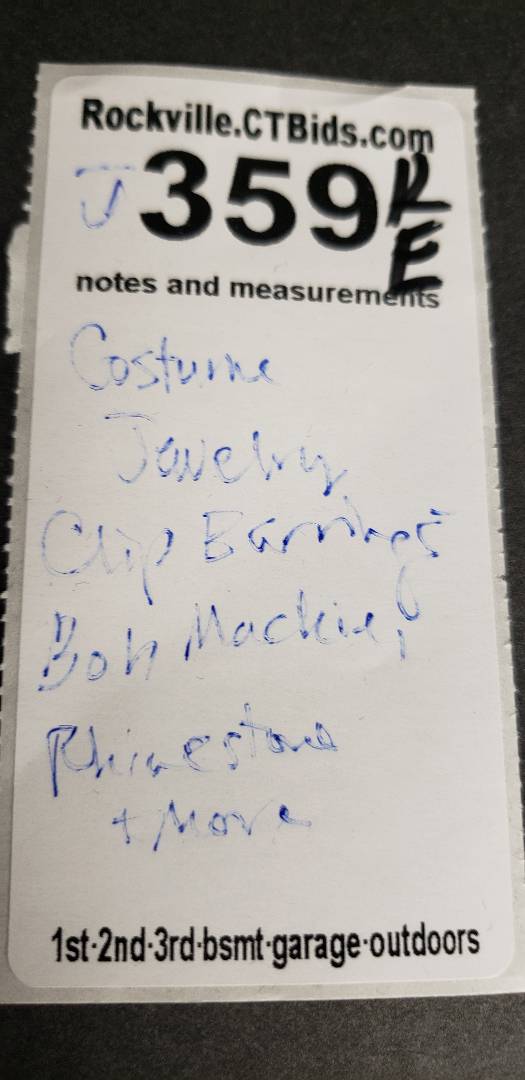 Rockville.CTBids.com
J 359 KE
notes and measurements
Costume
Jewelry
Clip Earrings
Bob Mackie,
Rhinestone
+ More
1st·2nd·3rd·bsmt·garage·outdoors